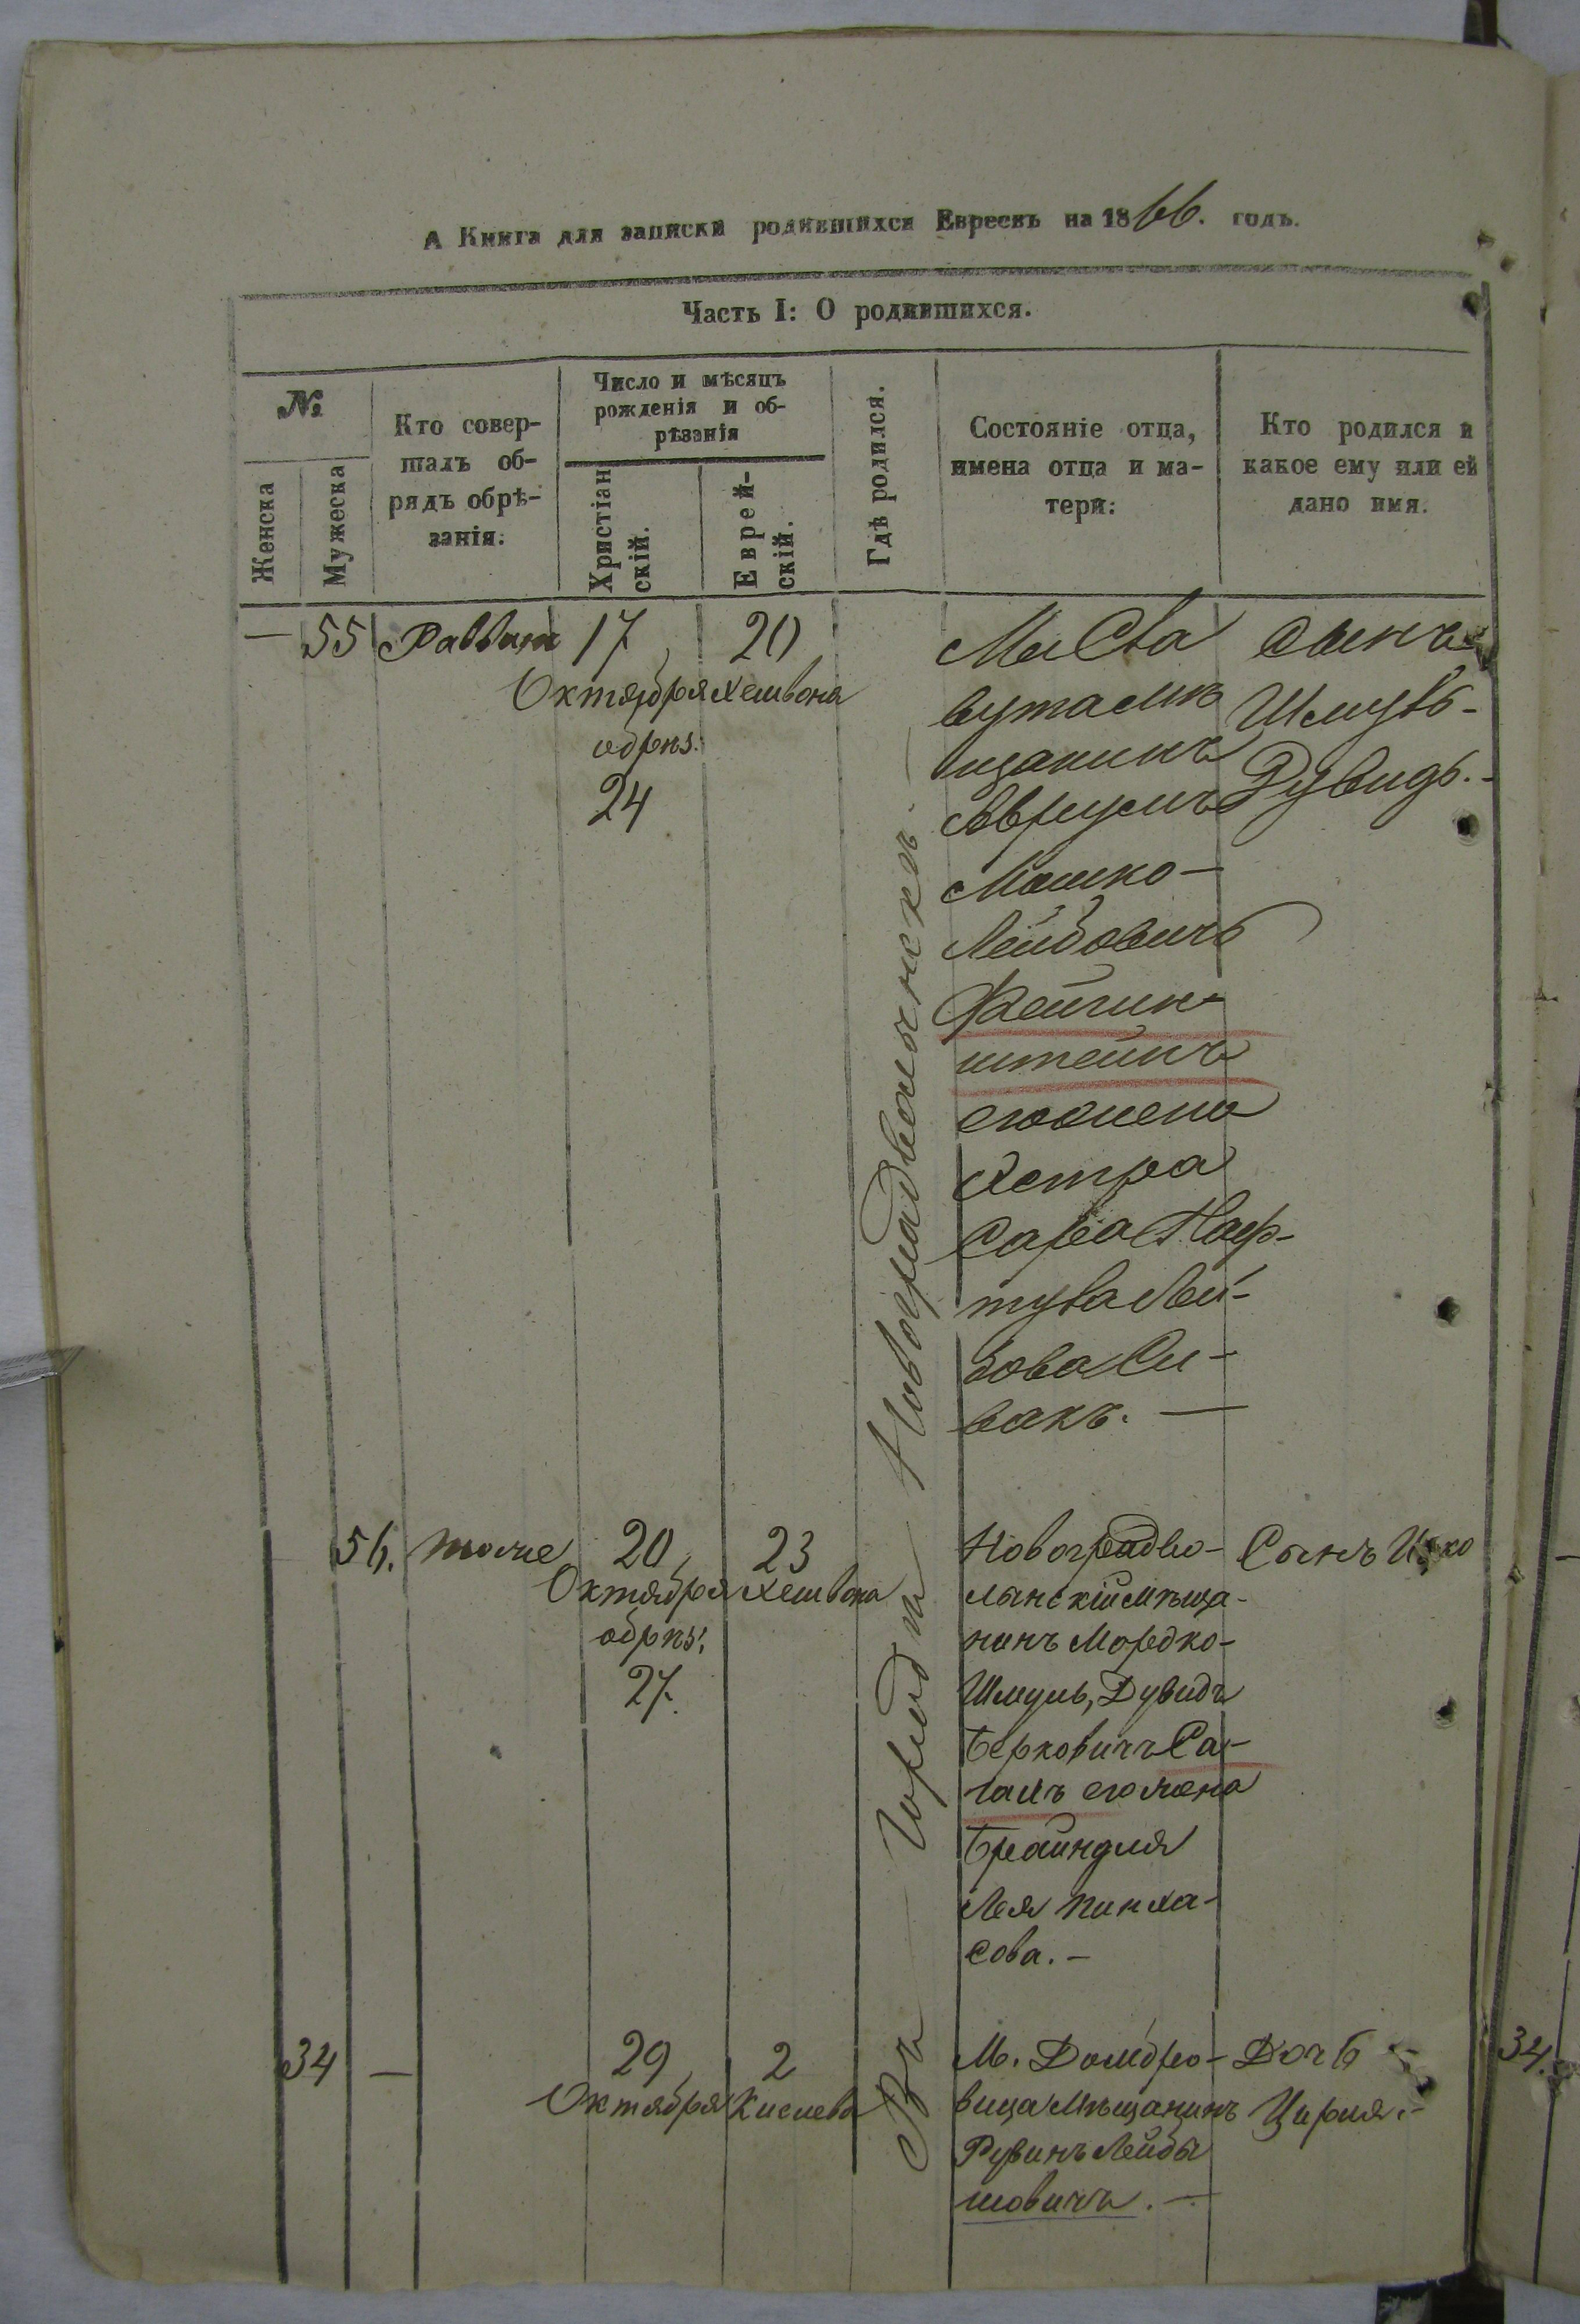 А Книга для записки родившихся Евреевъ на 1866. годъ.
Часть I: О родившихся.
№
Женска
Мужеска
Кто совер-
шалъ об-
рядъ обрѣ-
занія.
Число и мѣсяцъ
рожденія и об-
рѣзанія
Христіан
скій.
Еврей-
скій.
Гдѣ родился.
Состояніе отца,
имена отца и ма-
тери:
Кто родился и
какое ему или ей
дано имя.
— 55 Раввинъ
17
Октября
обрѣз.
24
20
Хешвона
Въ Городѣ Новоградволынскѣ. —
щанинъ
Аврумъ
Мошко-
Лейбовичъ
Фейгин-
штейнъ
его жена
Естра
Сара Наф-
тула Лей-
бова Си-
вакъ. —
сынъ
Шмуль-
Дувидъ.-
56. тоже
20
Октября
обрѣз.
27.
23
Хешвона
Новоградво-
лынскій мѣща-
нинъ Мордко-
Шмуль, Дувидъ
Берковичъ Са-
галъ его жена
Брайндля
Лея Пинха-
сова. —
Сынъ Ицко
34 —
29
Октября
2
Кислева
М. Домбро-
вица мѣщанинъ
Рувинъ Лейбы
шовичъ. —
Дочь
Цирля.-
34.